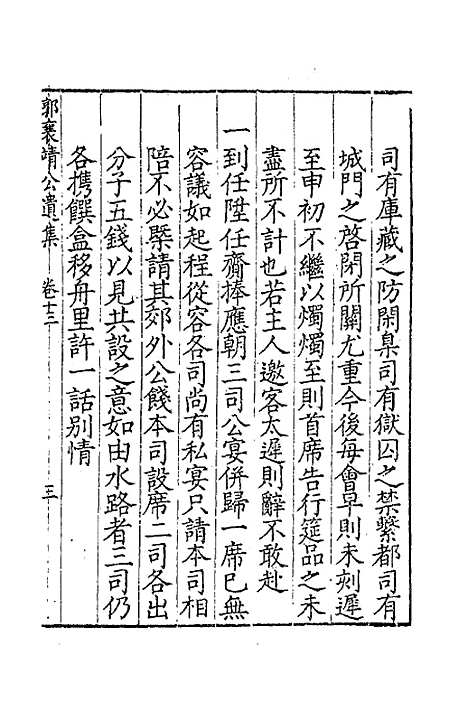 司有庫藏之防閑臬司有獄囚之禁繫都司有
城門之啓閉所關尤重今後每會早則未刻遲
至申初不繼以燭燭至則首席告行筵品之未
盡所不計也若主人邀客太遲則辭不敢赴
一到任陞任齎捧應朝三司公宴併歸一席已無
容議如起程從容各司尚有私宴只請本司相
陪不必槩請其郊外公餞本司設席二司各出
分子五錢以見共設之意如由水路者三司仍
各携饌盒移舟里許一話別情
郭襄靖公遺集
卷十三
三